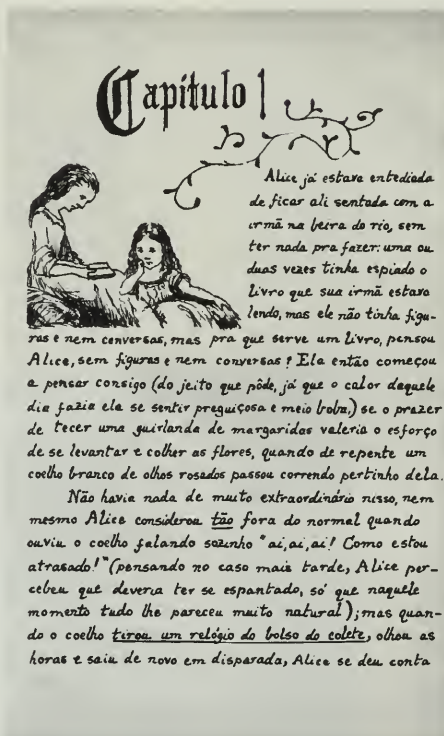 Capítulo 1
Alice já estava entediada
de ficar ali sentada com a
irmã na beira do rio, sem
ter nada pra fazer: uma ou
duas vezes tinha espiado o
livro que sua irmã estava
lendo, mas ele não tinha figu-
ras e nem conversas, mas pra que serve um livro, pensou
Alice, sem figuras e nem conversas? Ela então começou
a pensar consigo (do jeito que pôde, já que o calor daquele
dia fazia ela se sentir preguiçosa e meio boba,) se o prazer
de tecer uma guirlanda de margaridas valeria o esforço
de se levantar e colher as flores, quando de repente um
coelho branco de olhos rosados passou correndo pertinho dela.
Não havia nada de muito extraordinário nisso, nem
mesmo Alice considerou tão fora do normal quando
ouviu o coelho falando sozinho "ai, ai, ai! Como estou
atrasado!" (pensando no caso mais tarde, Alice per-
cebeu que deveria ter se espantado, só que naquele
momento tudo lhe pareceu muito natural); mas quan-
do o coelho tirou um relógio do bolso do colete, olhou as
horas e saiu de novo em disparada, Alice se deu conta